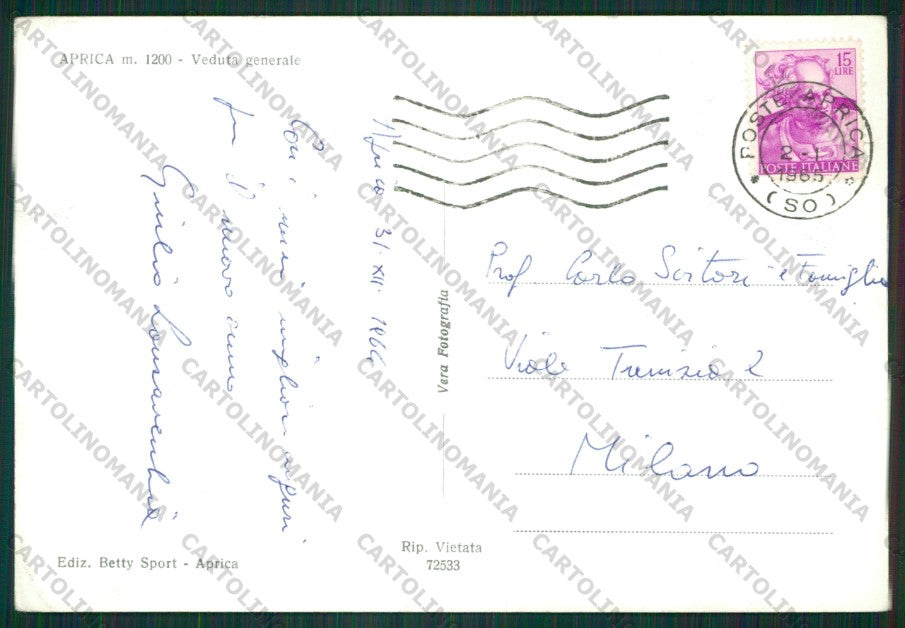 APRICA m. 1200 - Veduta generale
15
LIRE
POSTE ITALIANE
POSTE APRICA
2 - 1
1965
* (SO) *
Aprica 31. XII. 1964
Con i miei migliori auguri
per il nuovo anno
Giulio
Prof Carlo Sirtori e Famiglia
Viale Tunisia 2
Milano
Vera Fotografia
Rip. Vietata
72533
Ediz. Betty Sport - Aprica
CARTOLINOMANIA